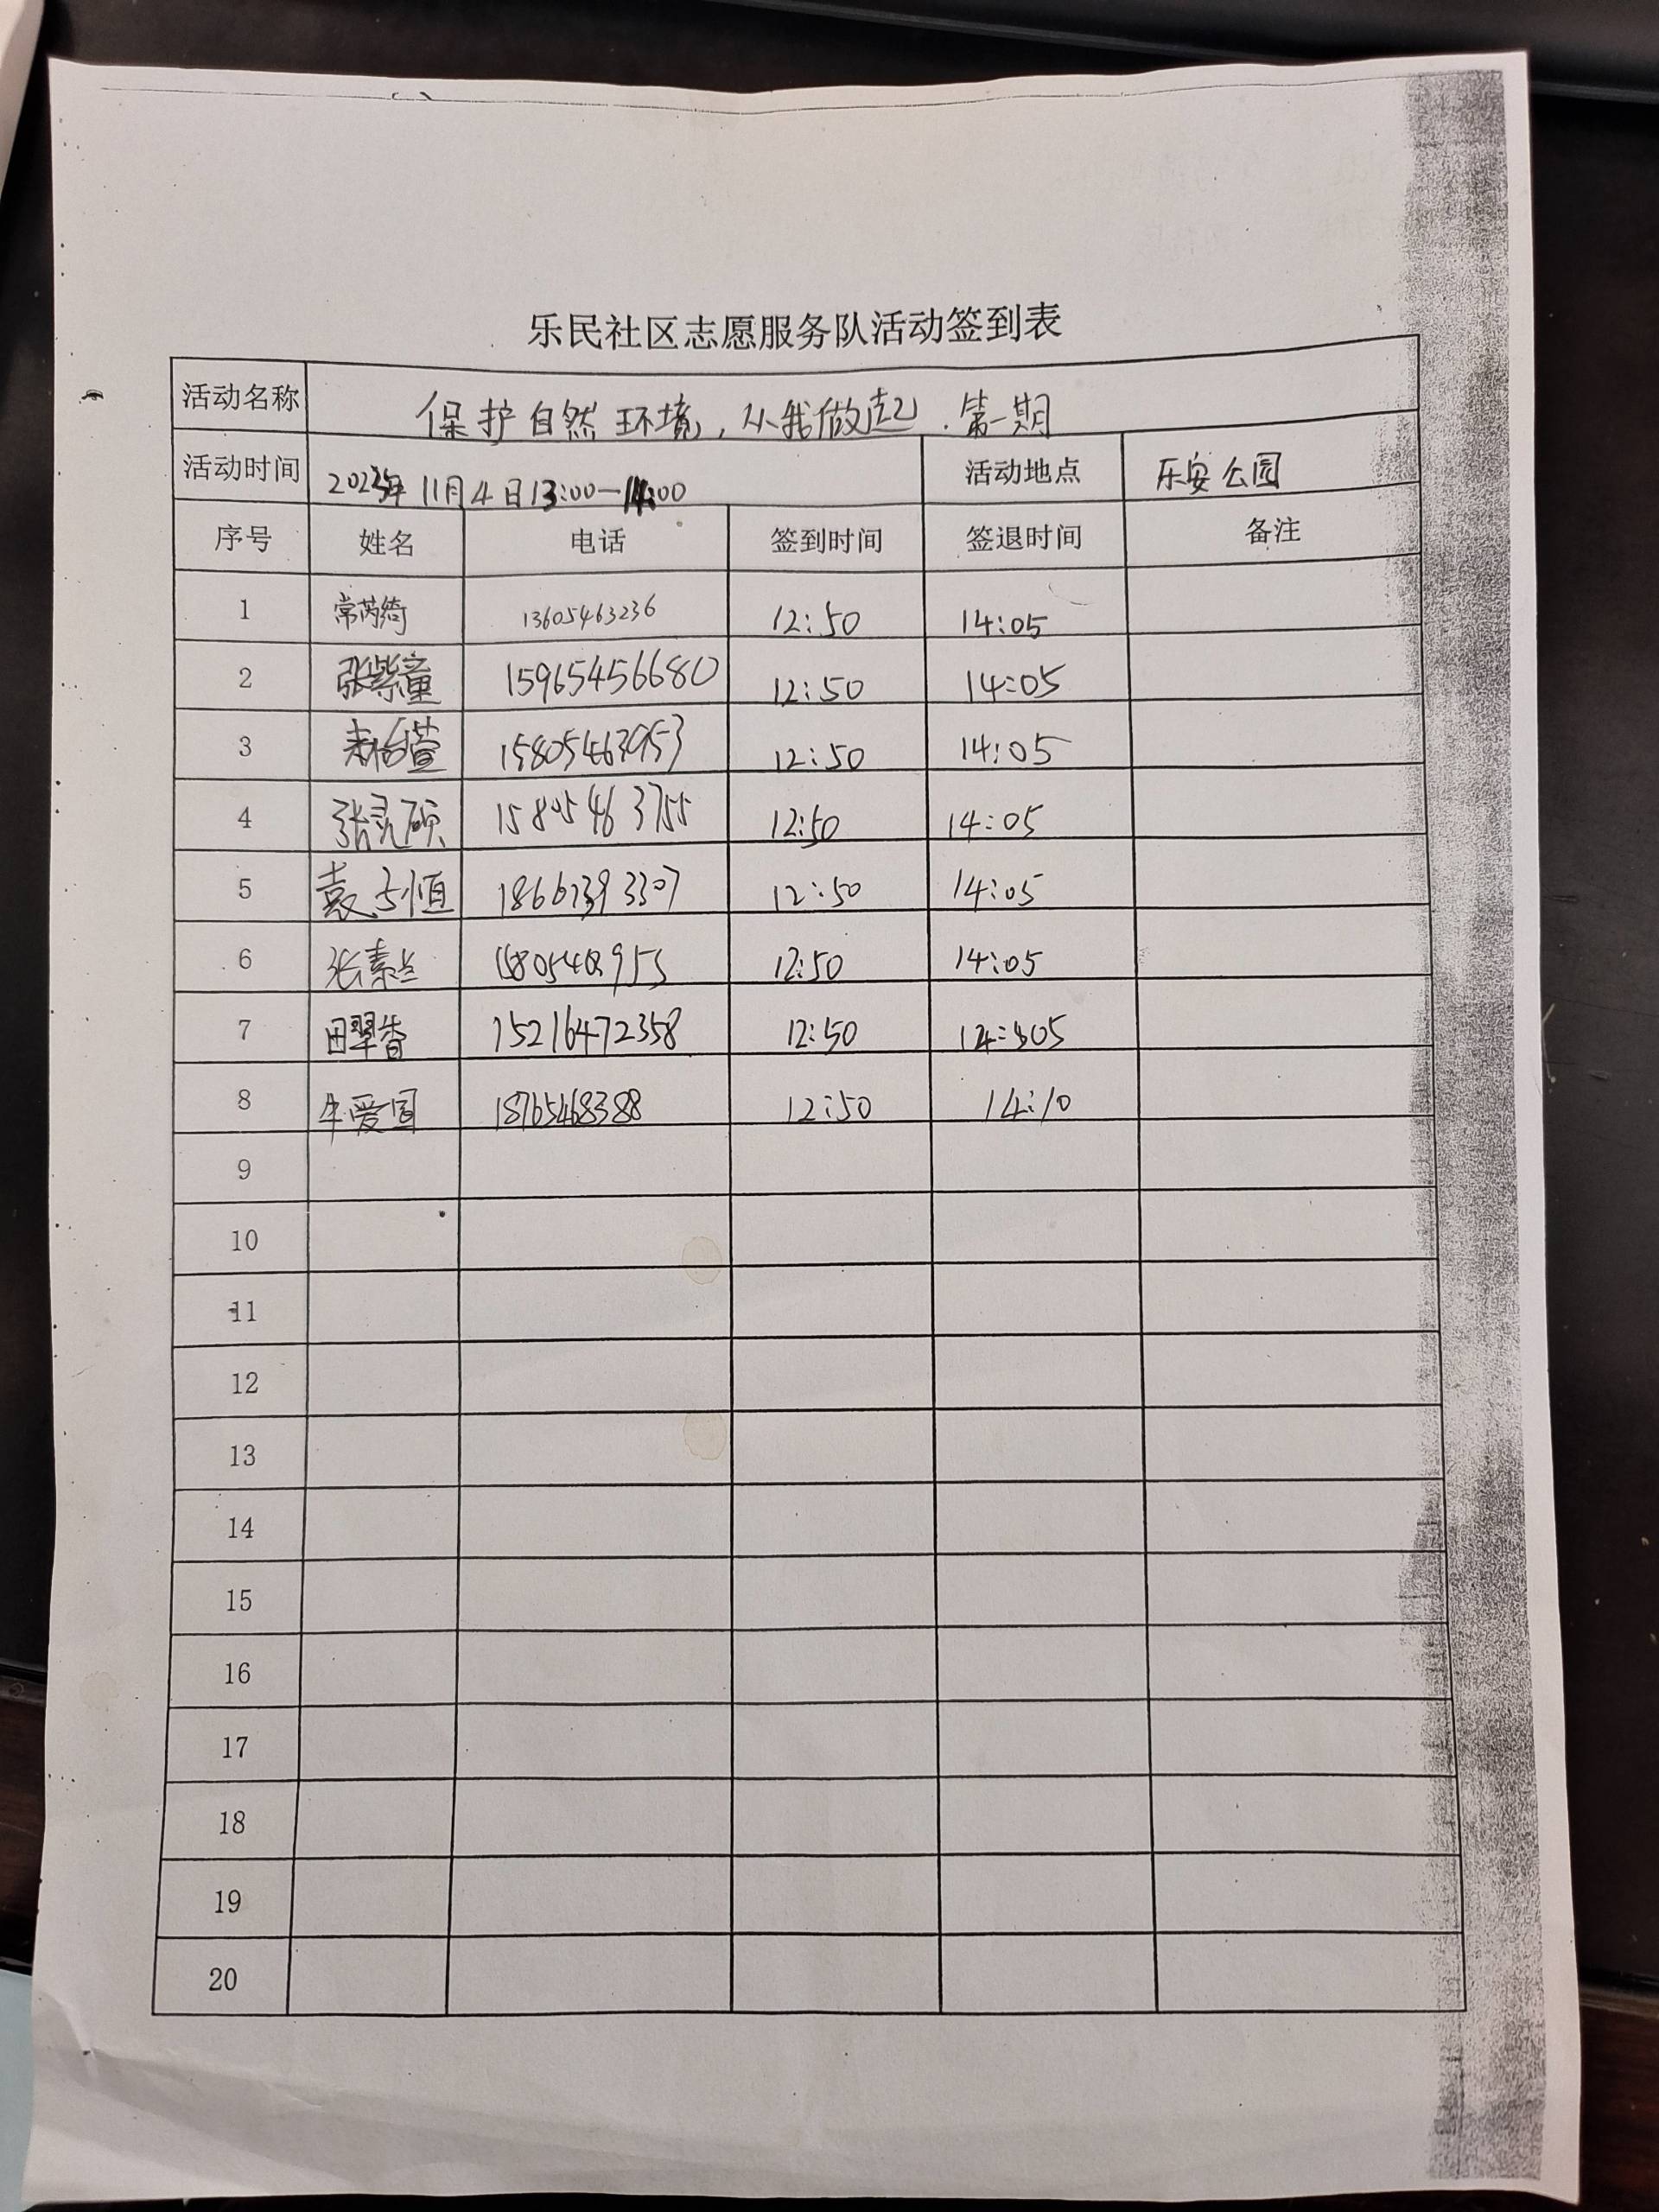 乐民社区志愿服务队活动签到表
活动名称 保护自然环境，从我做起．第一期
活动时间 2023年11月4日13:00—14:00 活动地点 乐安公园
序号 姓名 电话 签到时间 签退时间 备注
1 常芮绮 13605463236 12:50 14:05
2 张紫童 15965456680 12:50 14:05
3 15805463953 12:50 14:05
4 张灵硕 15805463755 12:50 14:05
5 袁 恒 12:50 14:05
6 张素兰 12:50 14:05
7 田翠香 15216472358 12:50
8 牛爱国 18765468388 12:50 14:10
9
10
11
12
13
14
15
16
17
18
19
20